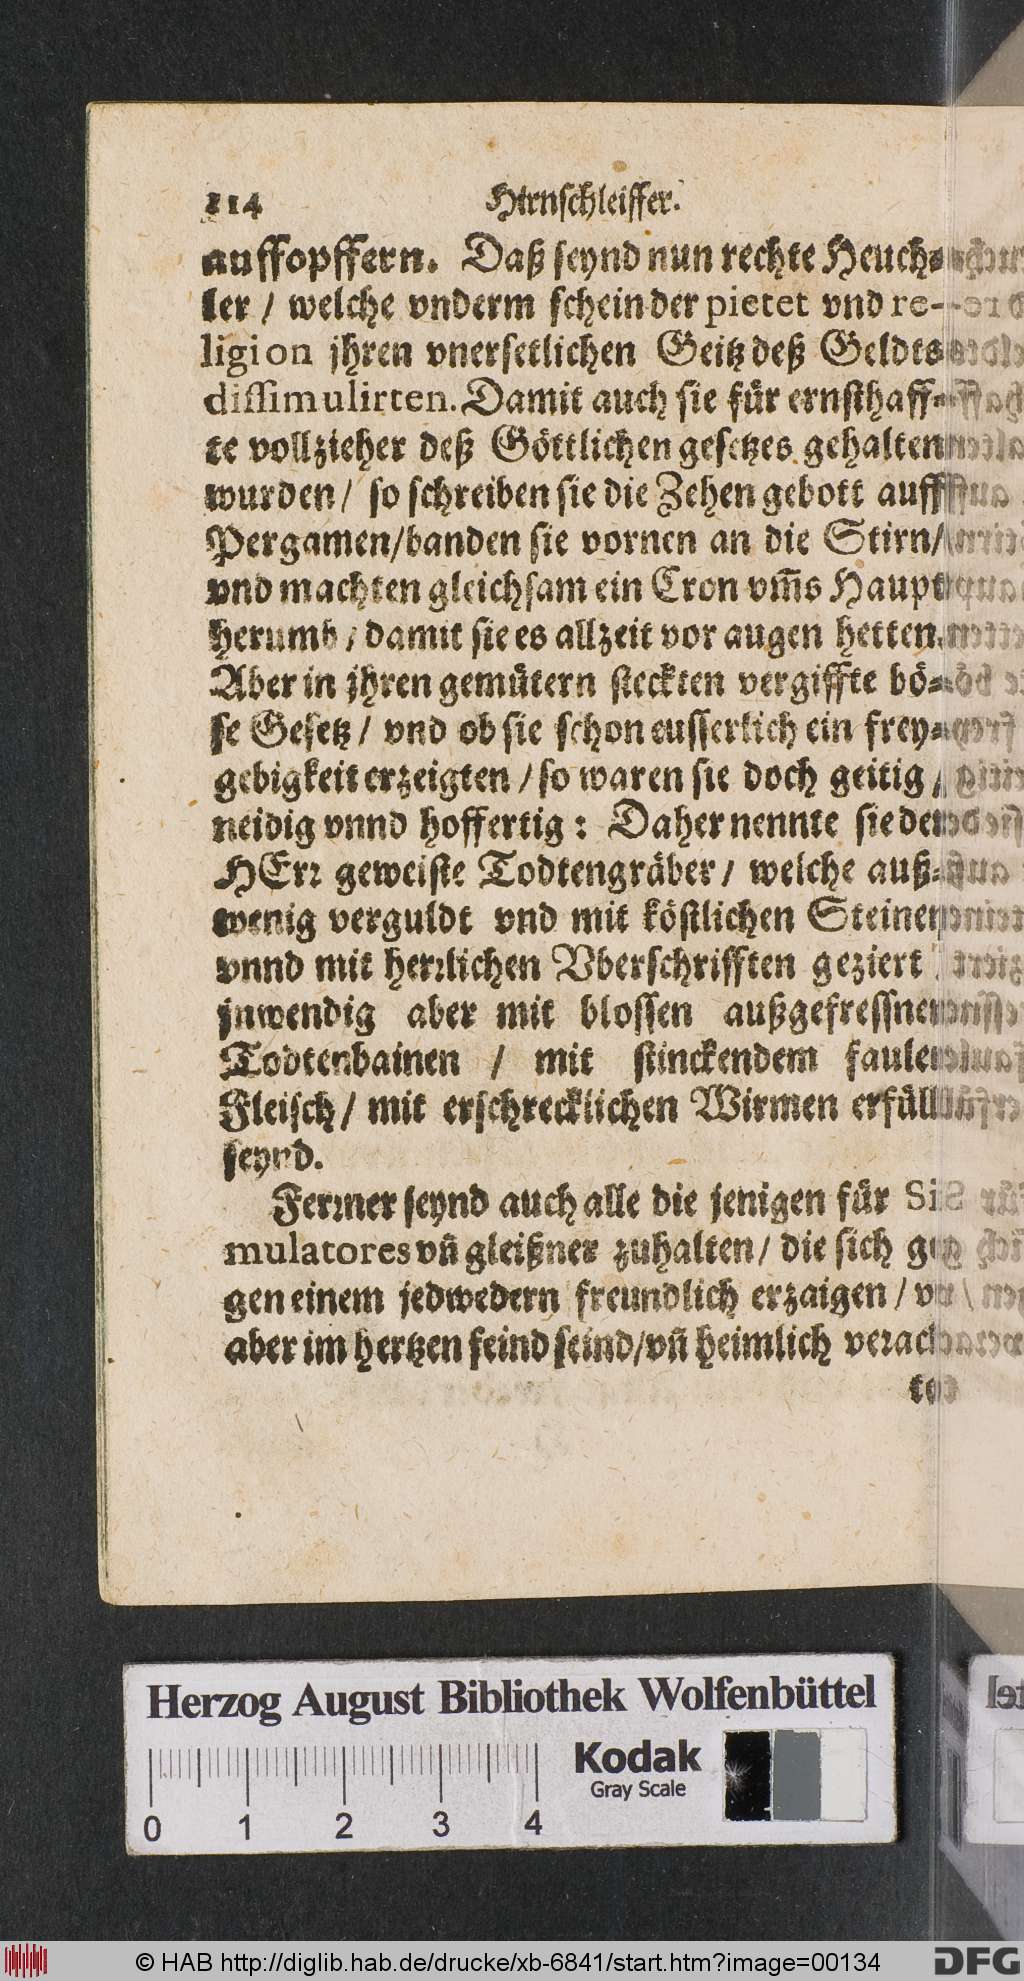 114 Hirnschleiffer.
auffopffern. Daß seynd nun rechte Heuch-
ler / welche vnderm schein der pietet vnd re-
ligion jhren vnersetlichen Geitz deß Geldts
dissimulirten. Damit auch sie für ernsthaff-
te vollzieher deß Göttlichen gesetzes gehalten
wurden / so schreiben sie die Zehen gebott auff
Pergamen/banden sie vornen an die Stirn/
vnd machten gleichsam ein Cron vm̃s Haupt
herumb / damit sie es allzeit vor augen hetten.
Aber in jhren gemütern steckten vergiffte bö-
se Gesetz / vnd ob sie schon eusserlich ein frey-
gebigkeit erzeigten / so waren sie doch geitig /
neidig vnnd hoffertig : Daher nennte sie der
HErr geweiste Todtengräber / welche auß-
wenig verguldt vnd mit köstlichen Steinen
vnnd mit herrlichen Vberschrifften geziert
jnwendig aber mit blossen außgefressnen
Todtenbainen / mit stinckendem faulem
Fleisch / mit erschrecklichen Wirmen erfüllt
seynd.
Ferrner seynd auch alle die jenigen für Si-
mulatores vñ gleißner zuhalten / die sich ge-
gen einem jedwedern freundlich erzaigen / vn
aber im hertzen feind seind/vñ heimlich verach-
tet
Herzog August Bibliothek Wolfenbüttel
Kodak
Gray Scale
0 1 2 3 4
© HAB http://diglib.hab.de/drucke/xb-6841/start.htm?image=00134
DFG